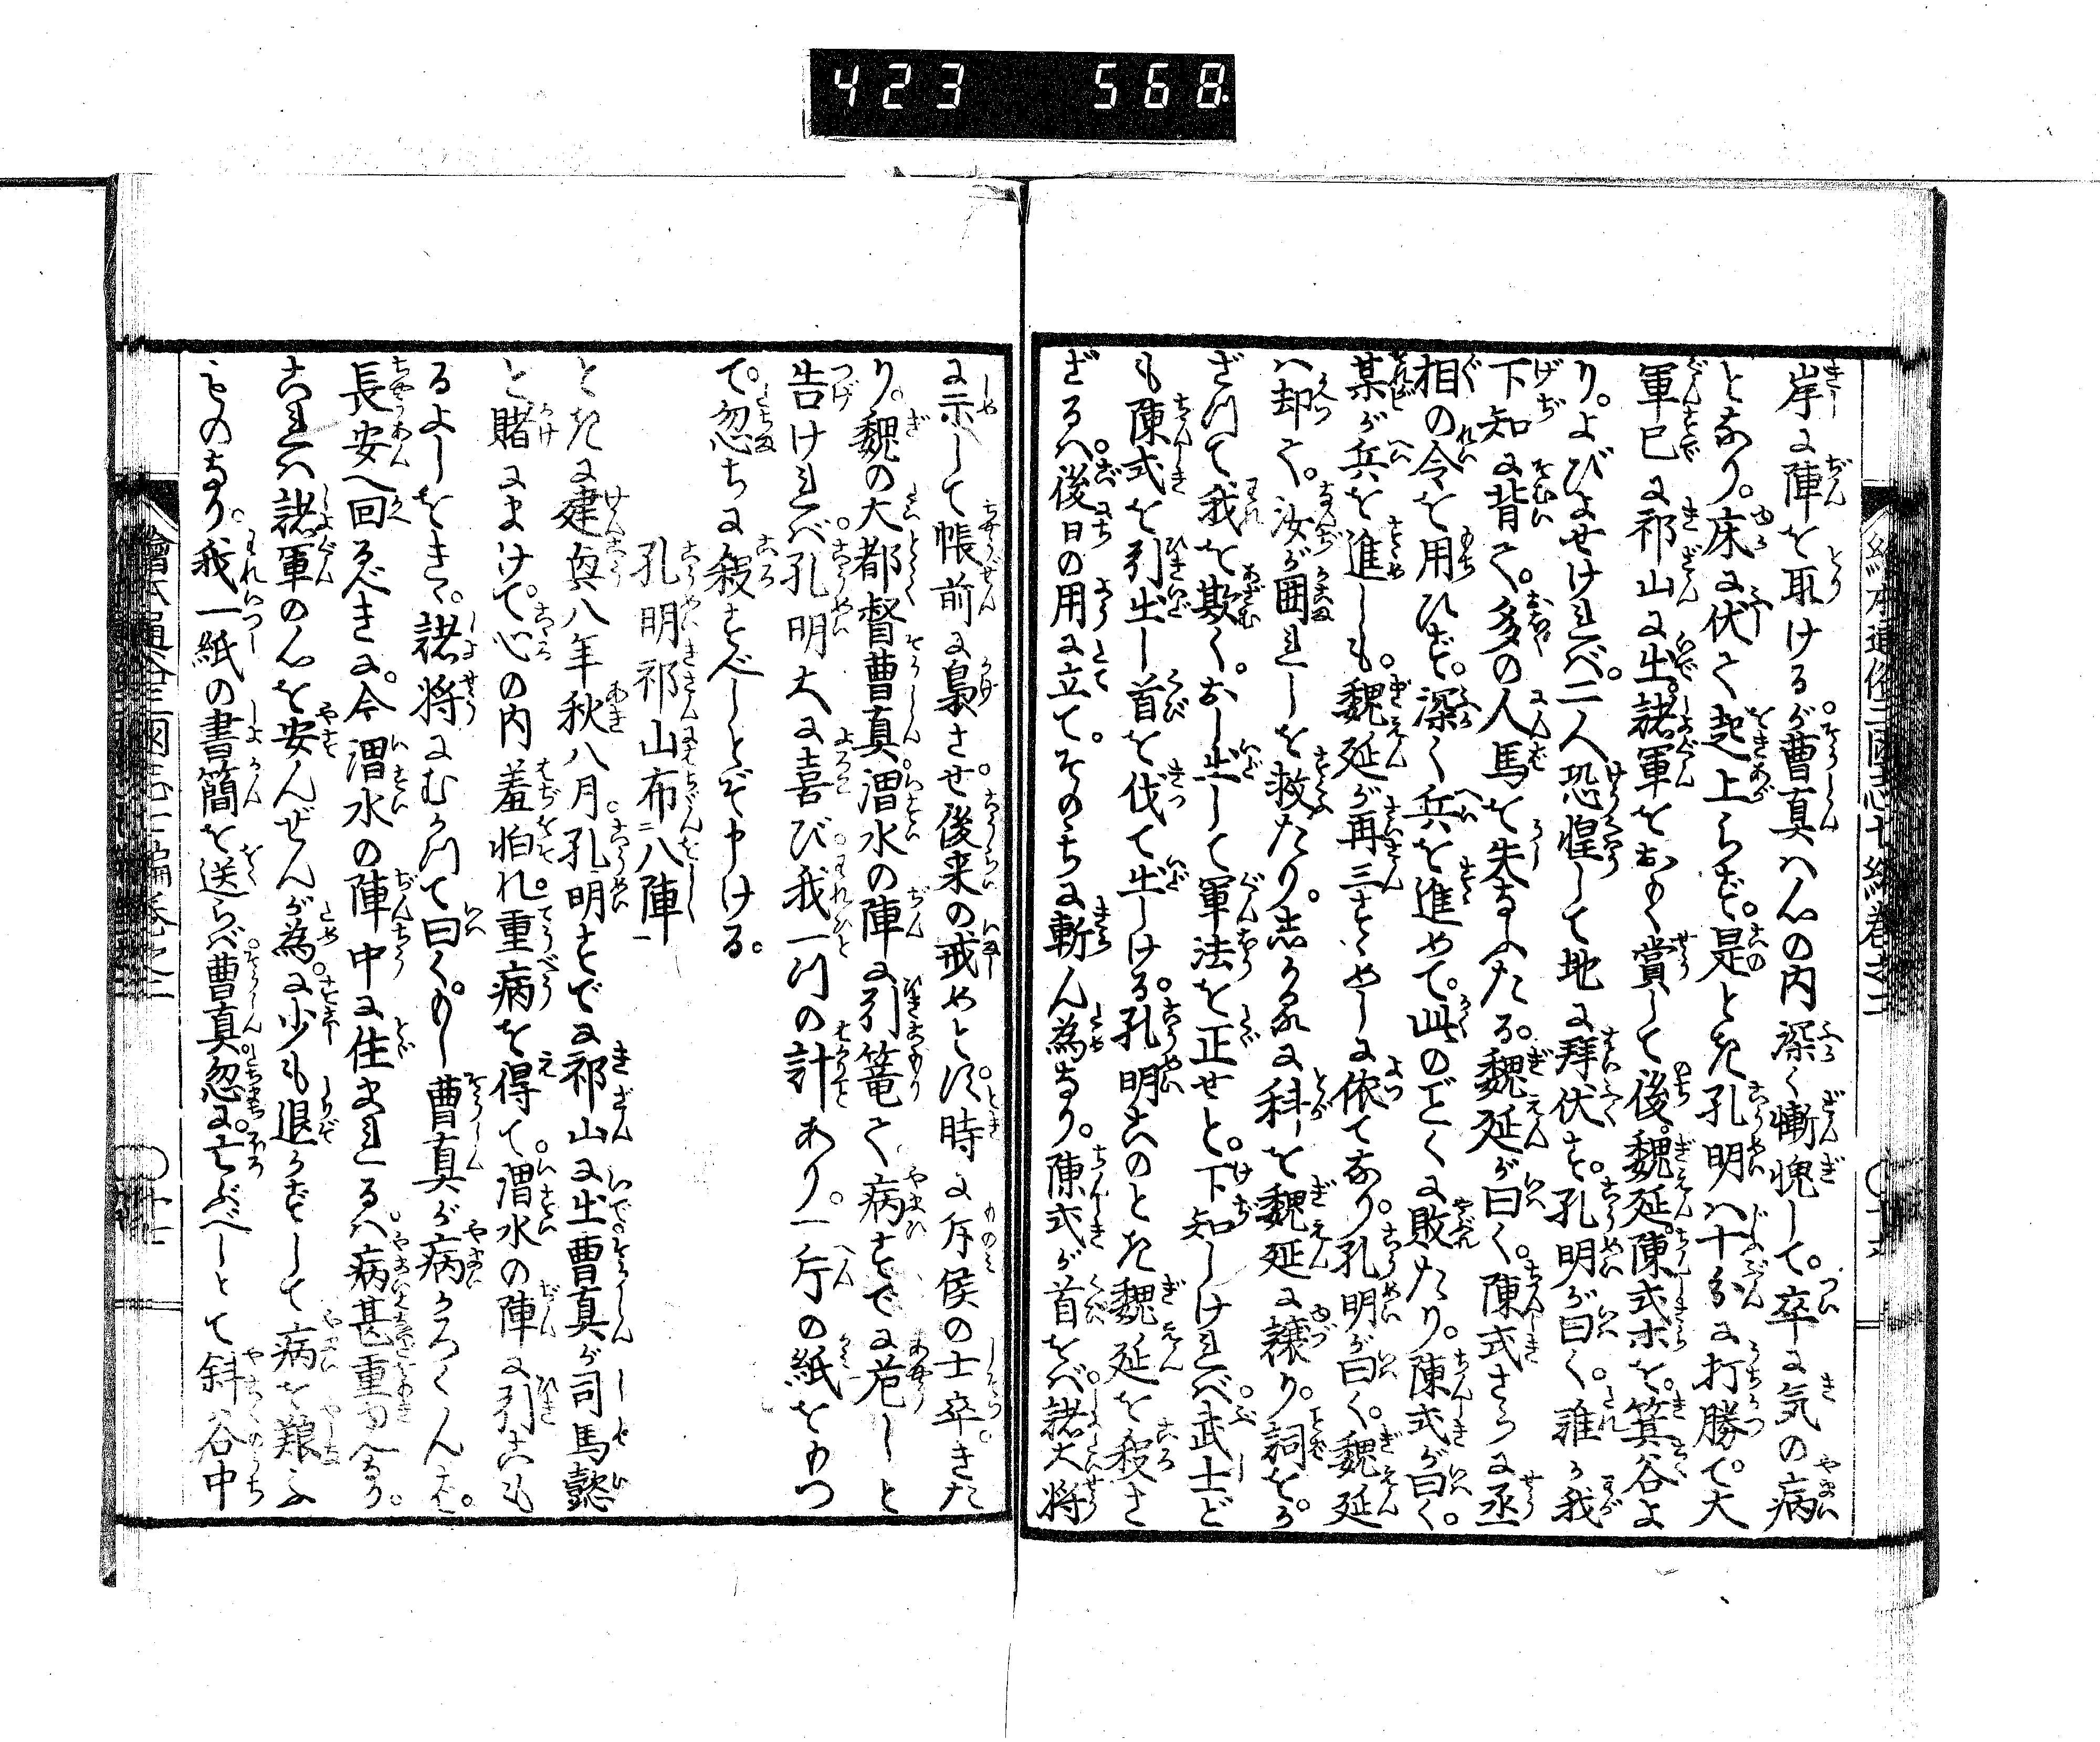 423 568
繪本通俗三國志七編卷之二
岸に陣を取けるが。曹真ハ心の内深く慚愧して。卒に気の病
となり。床に伏て起上らず。是とき孔明ハ十分に打勝て。大
軍已に祁山に出。諸軍をおもく賞して後。魏延。陳式ホを。箕谷よ
り。よびよせけれバ。二人恐惶して地に拜伏す。孔明が曰く。誰か我
下知に背て。多の人馬を失なへたる。魏延が曰く。陳式さらに丞
相の令を用ひず。深く兵を進めて。此のごとくに敗たり。陳式が曰く。
某が兵を進しも。魏延が再三すゝめしに依てなり。孔明が曰く。魏延
ハ却て。汝が囲れしを救たり。志かるに科を魏延に譲り。詞をか
ざつて我を欺く。おし出して軍法を正せと。下知しけれバ。武士ど
も陳式を引出し首を伐て出しける。孔明このとき魏延を殺さ
ざるハ。後日の用に立て。そのちに斬ん為なり。陳式が首をバ。諸大将
に示して帳前に梟させ。後来の戒めとす。時に斥候の士卒。きた
り。魏の大都督曹真。渭水の陣に引篭て。病すでに危しと
告けれバ。孔明大に喜び。我一ツの計あり。一斤の紙をもつ
て。忽ちに殺すべしとぞ申ける。
孔明祁山布二八陣一
とき に建興八年秋八月。孔明すでに祁山に出。曹真が司馬懿
と賭にまけて。心の内羞怕れ。重病を得て。渭水の陣に引こも
るよしをきゝ。諸将にむかつて曰く。もし曹真が病かろくんバ。
長安へ回るべきに。今渭水の陣中に住まれるハ。病甚重ゆへなり。
これハ諸軍の心を安んぜんが為に。少も退かずして病を艱ふ
ものなり。我一紙の書簡を送らバ。曹真忽に亡ぶべしとて斜谷中
繪本通俗三國志七編卷之二